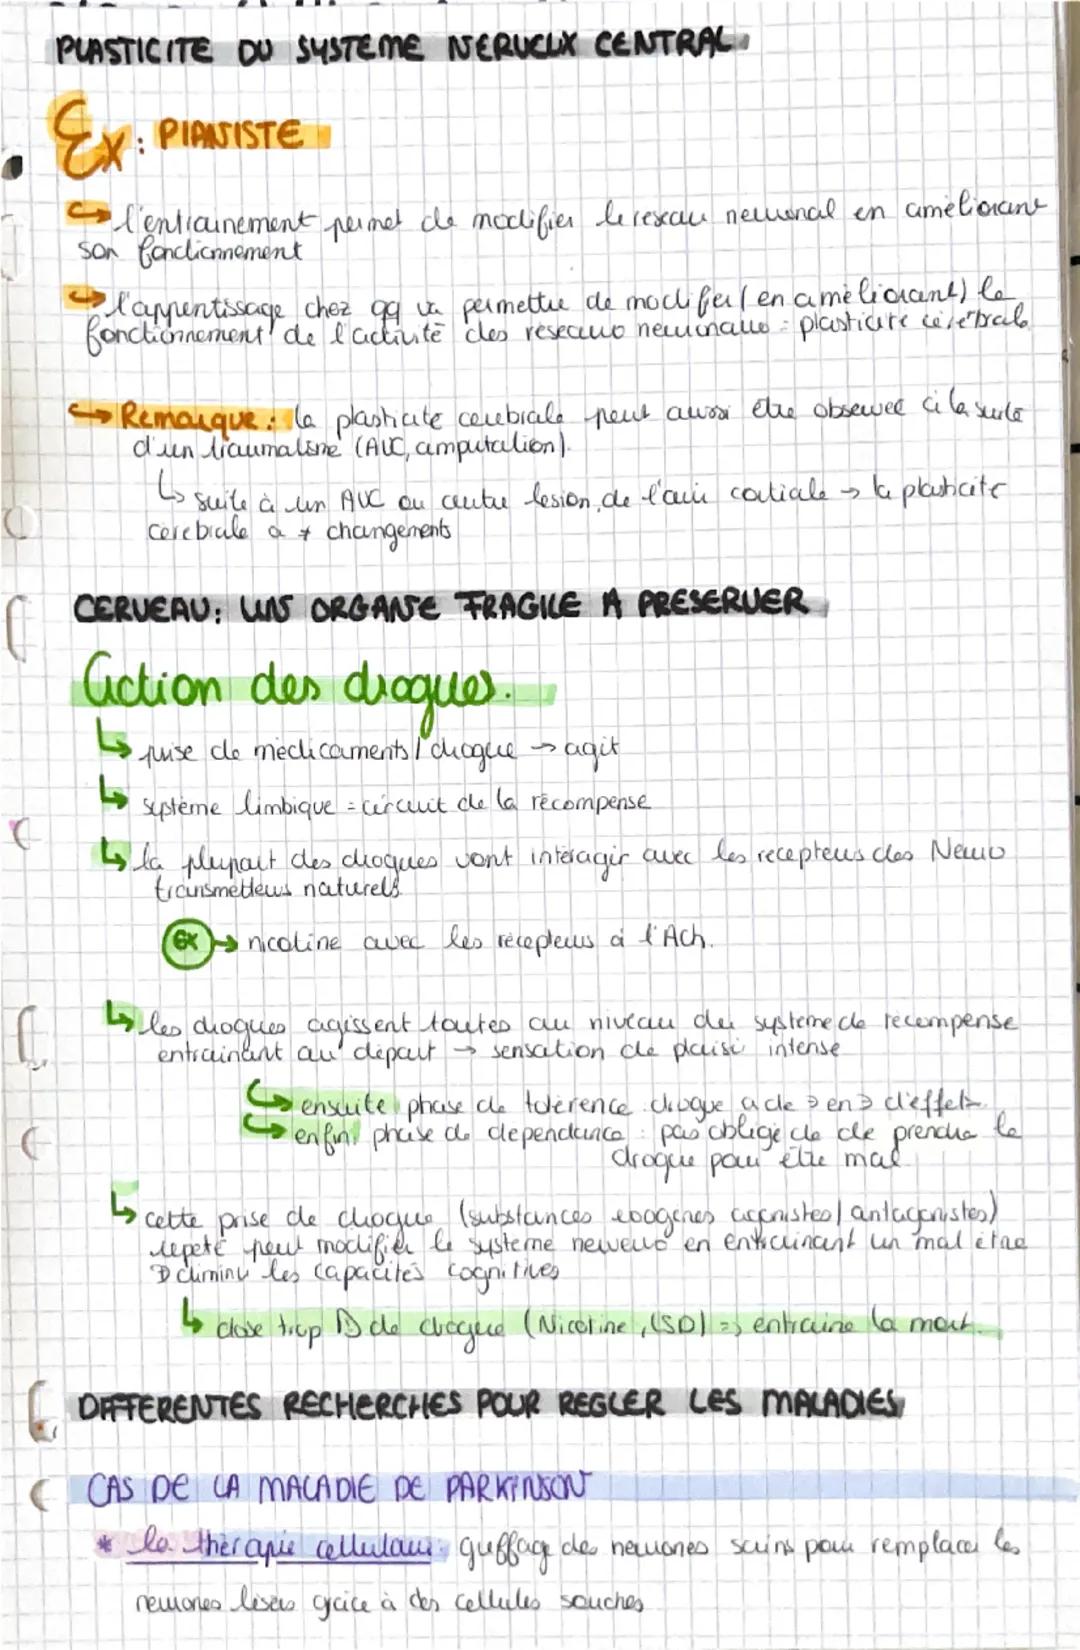 PLASTICITE DU SYSTEME NERVEUX CENTRAL
Ex: PIANISTE
l'entrainement permet de modifier le reseau neuronal en améliorant
son fonctionnement
l'apprentissage chez qq va permettre de modifier (en améliorant) le
fonctionnement de l'activité des reseaux neuronaux = plasticité cérébrale
Remarque: la plasticite cerebrale peut aussi être observee à la suite
d'un traumatisme (AVC, amputation).
suite à un AVC ou autre lesion de l'aire cortiale → la plasticite
cerebrale a ≠ changements
CERVEAU: UN ORGANE FRAGILE A PRESERVER
Action des drogues.
prise de médicaments / drogue → agit
système limbique = circuit de la récompense
la plupart des drogues vont intéragir avec les recepteurs des Neuro
transmetteurs naturels
Ex → nicotine avec les récepteurs à l'Ach.
les drogues agissent toutes au niveau du systeme de recompense
entrainant au départ → sensation de plaisir intense
ensuite phase de tolérence drogue a de - en - d'effets
enfin, phase de dependance : pas obligé de de prendre la
drogue pour être mal
cette prise de drogue (substances exogènes agonistes/antagonistes)
repeté peut modifier le systeme nerveux en entrainant un mal être
D diminu les capacités cognitives
dose trop de drogue (Nicotine, LSD) => entraine la mort.
DIFFERENTES RECHERCHES POUR REGLER LES MALADIES
CAS DE LA MALADIE DE PARKINSON
* la thérapie cellulaire: greffage des neurones sains pour remplacer les
neurones lésés grâce à des cellules souches